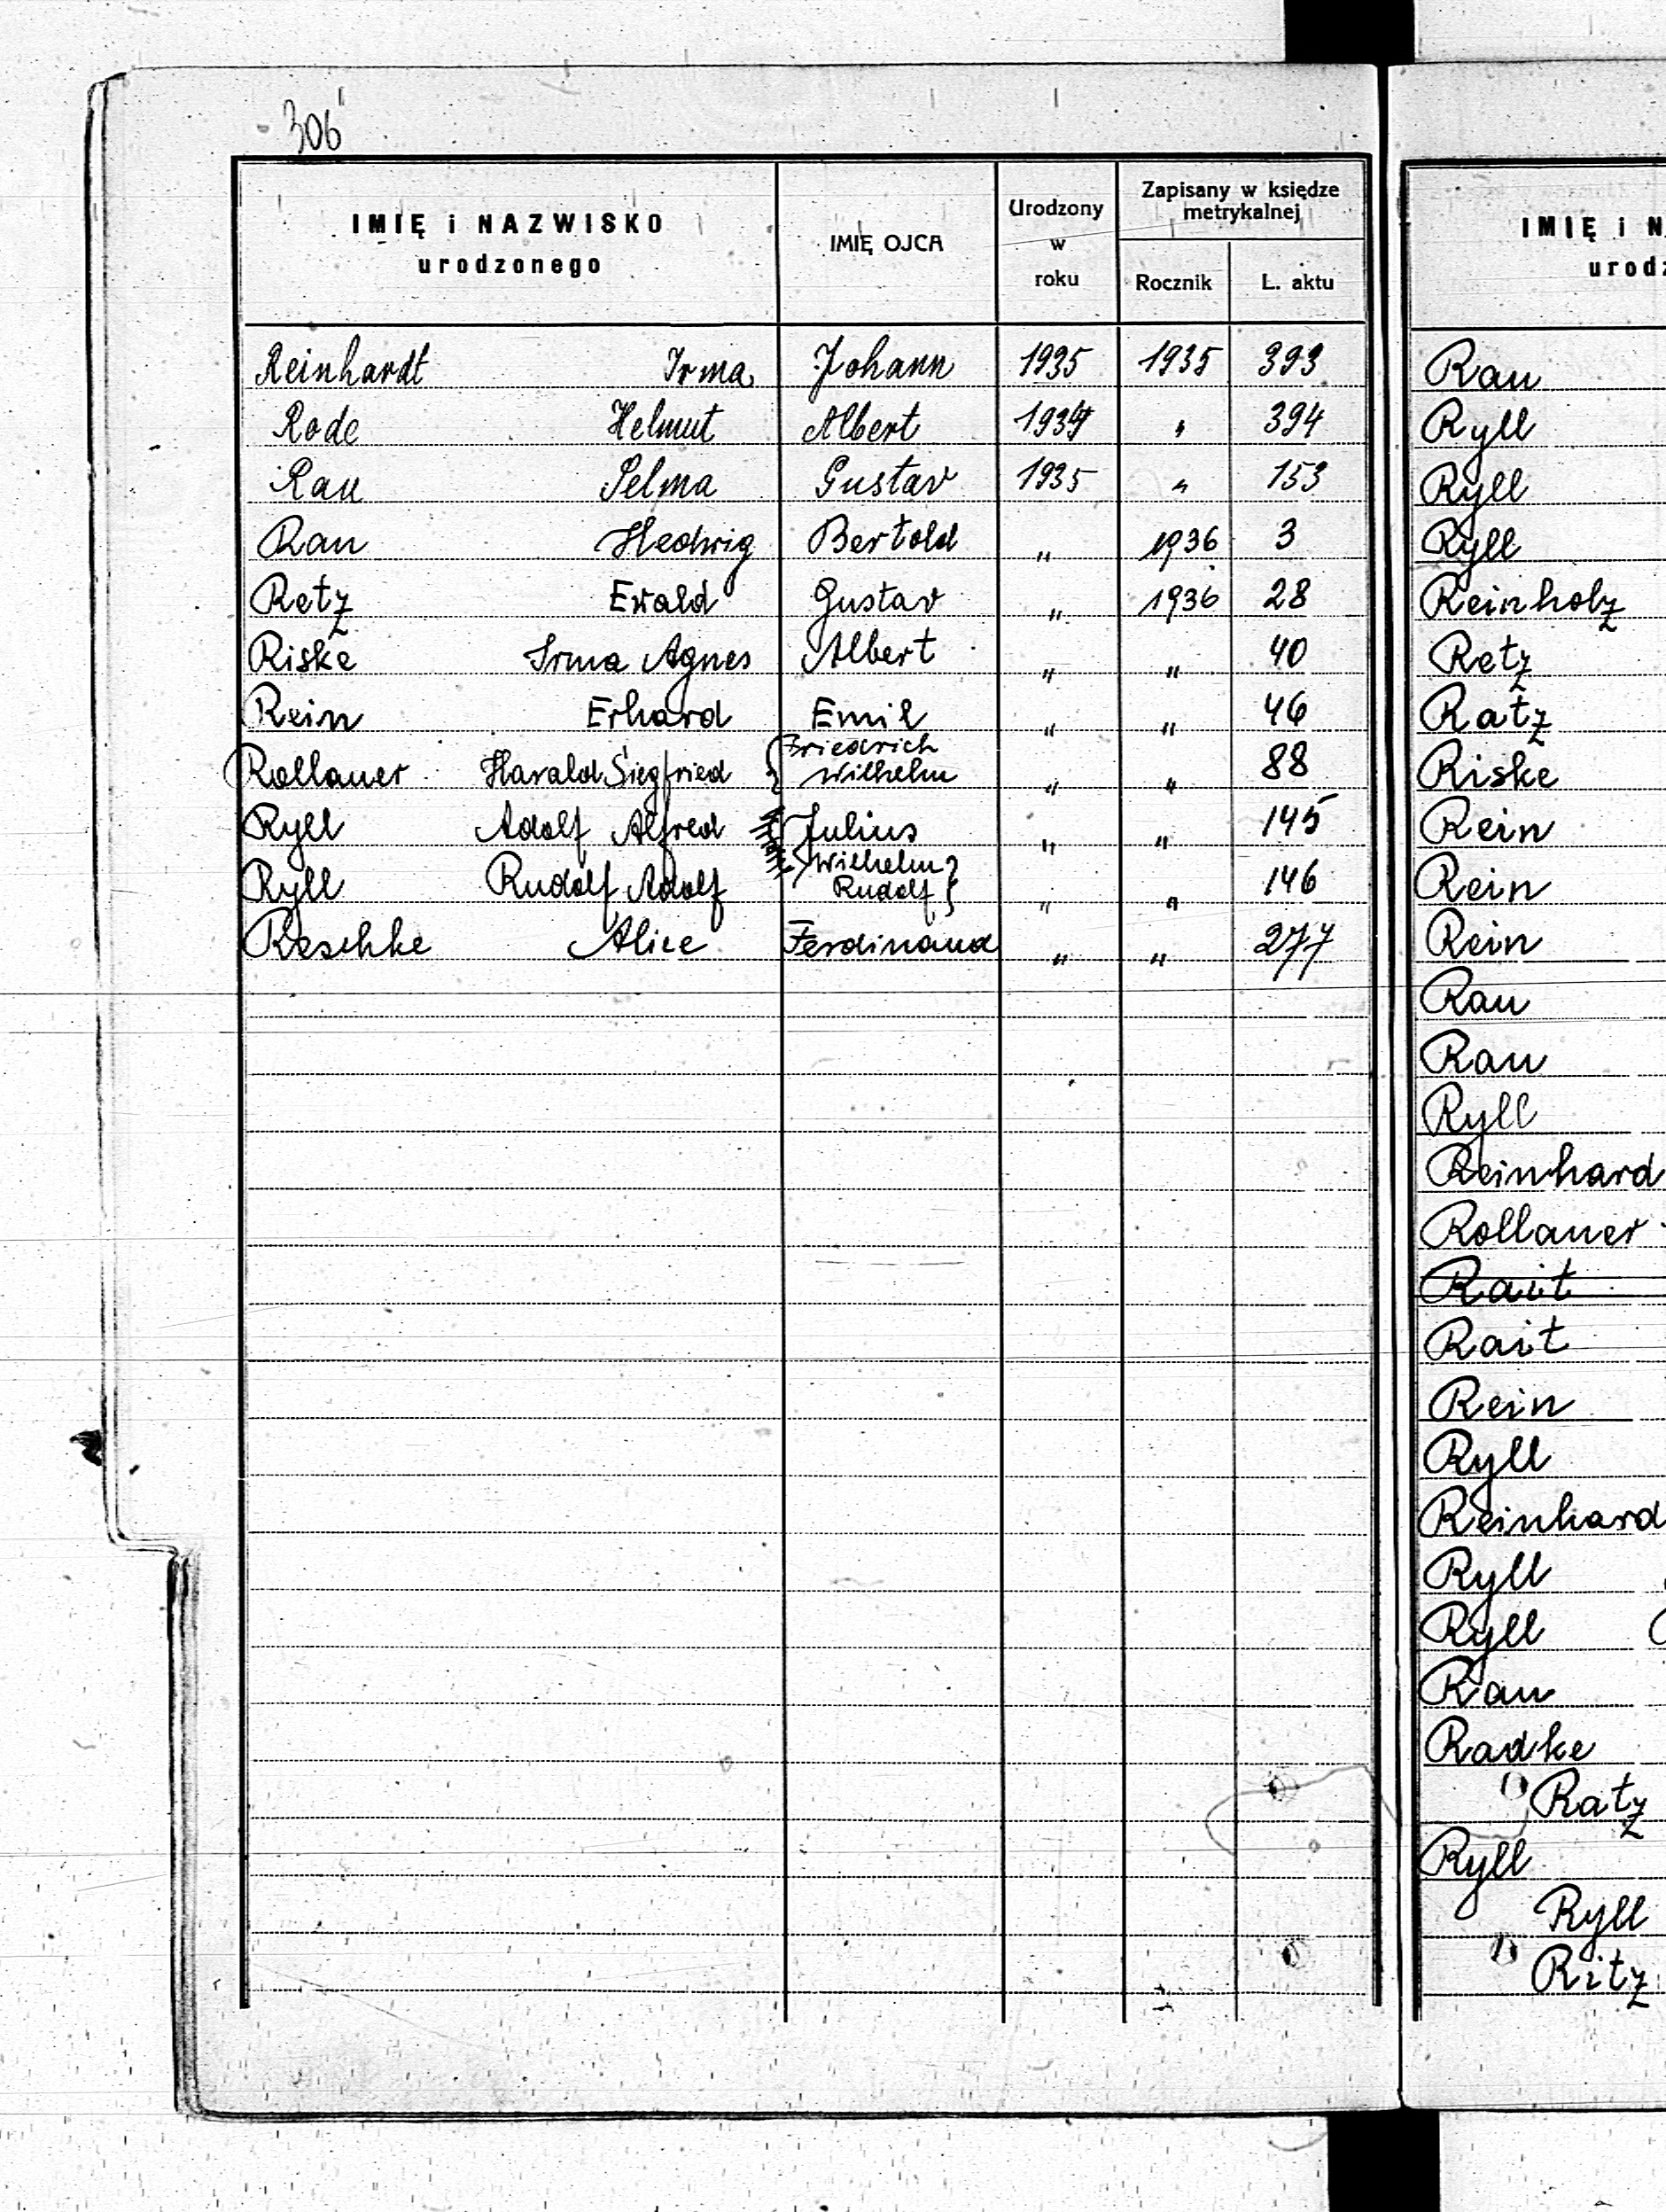 306
IMIĘ i NAZWISKO
urodzonego
IMIĘ OJCA
Urodzony
w
roku
Zapisany w księdze
metrykalnej
Rocznik
L. aktu
Reinhardt Irma Johann 1935 1935 393
Rode Helmut Albert 1934 " 394
Rau Selma Gustav 1935 " 153
Rau Hedwig Bertold " 1936 3
Retz Ewald Gustav " 1936 28
Riske Irma Agnes Albert " " 40
Rein Erhard Emil " " 46
Rollauer Harald Siegfried Friedrich
Wilhelm " " 88
Ryll Adolf Alfred Julius " " 145
Ryll Rudolf Adolf Wilhelm
Rudolf " " 146
Reschke Alice Ferdinand " " 277
IMIĘ i N
urodz
Rau
Ryll
Ryll
Ryll
Reinholz
Retz
Ratz
Riske
Rein
Rein
Rein
Rau
Rau
Ryll
Reinhard
Rollauer
Rait
Rait
Rein
Ryll
Reinhard
Ryll
Ryll
Rau
Radke
Ratz
Ryll
Ryll
Ritz